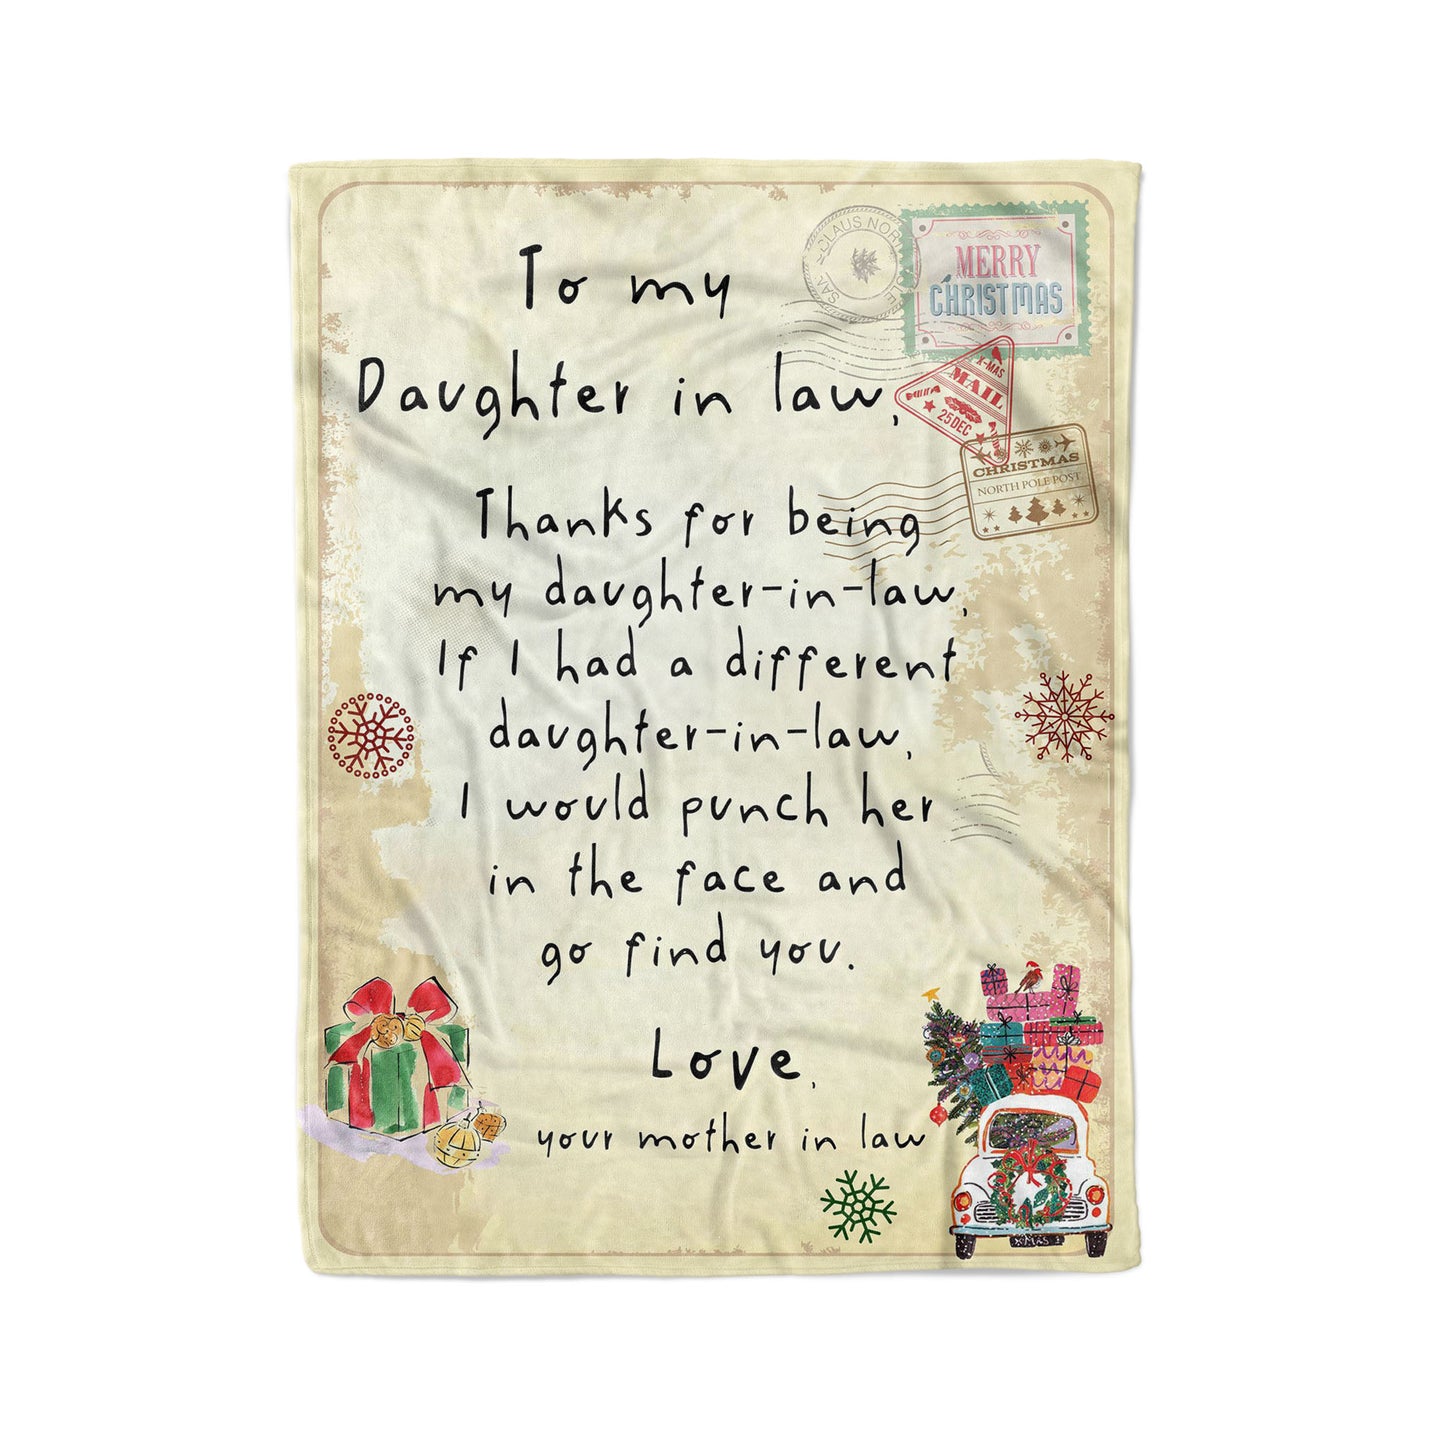 To my
Daughter in law,
Thanks for being
my daughter-in-law,
If I had a different
daughter-in-law,
I would punch her
in the face and
go find you.
Love,
your mother in law
MERRY
CHRISTMAS
X-MAS
MAIL
25 DEC
CHRISTMAS
NORTH POLE POST
X-MAS